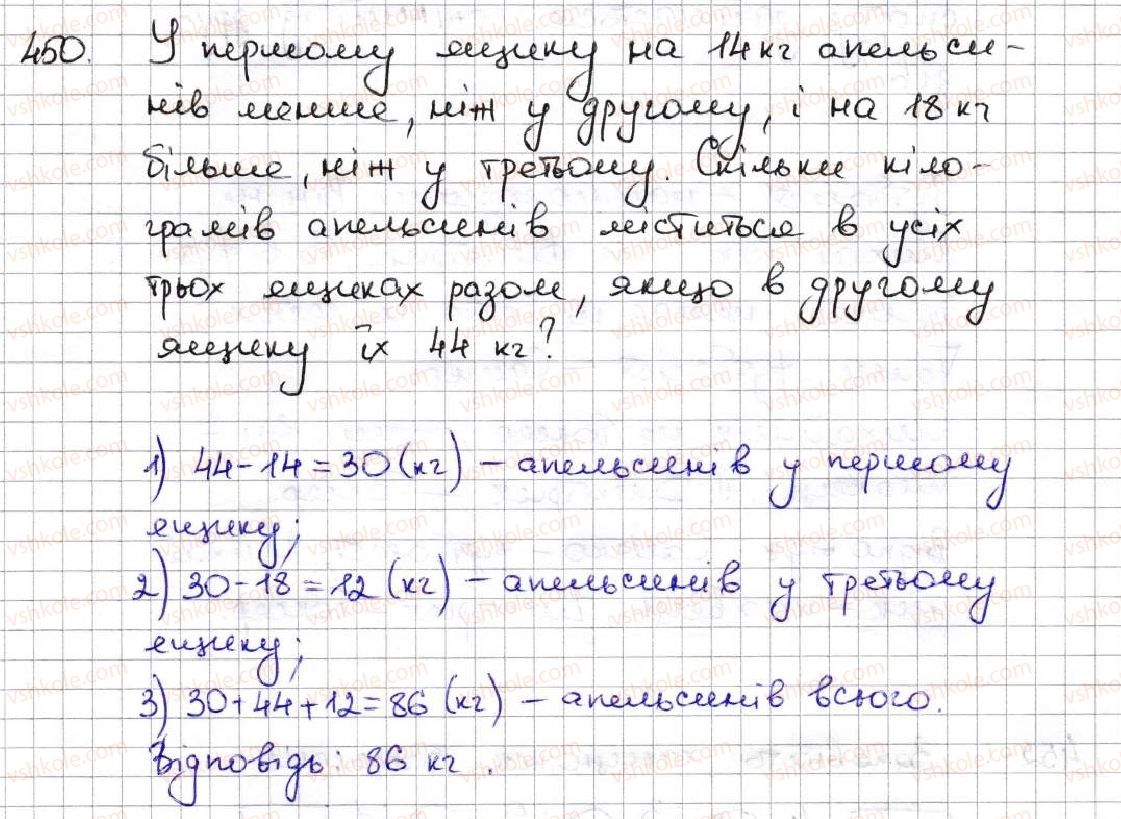 450. У першому ящику на 14 кг апельси-
нів менше, ніж у другому, і на 18 кг
більше, ніж у третьому. Скільки кіло-
грамів апельсинів міститься в усіх
трьох ящиках разом, якщо в другому
ящику їх 44 кг?
1) 44-14=30 (кг) – апельсинів у першому
ящику;
2) 30-18=12 (кг) – апельсинів у третьому
ящику;
3) 30+44+12=86 (кг) – апельсинів всього.
Відповідь: 86 кг.
vshkole.com